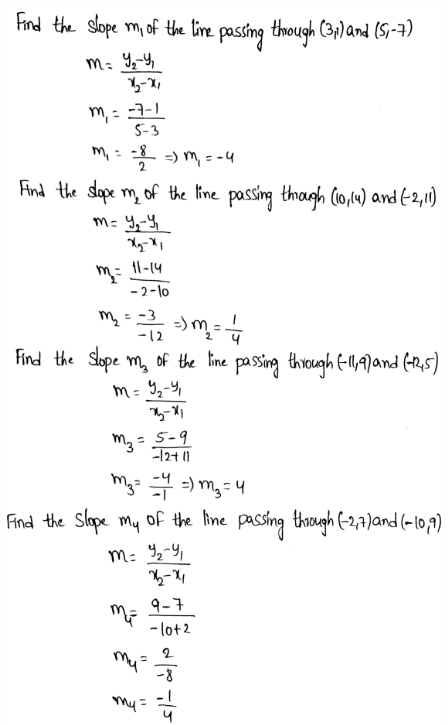 Find the slope m₁ of the line passing through (3,1) and (5,-7)
m = y₂-y₁ / x₂-x₁
m₁ = -7-1 / 5-3
m₁ = -8 / 2 => m₁ = -4
Find the slope m₂ of the line passing through (10,14) and (-2,11)
m = y₂-y₁ / x₂-x₁
m₂ = 11-14 / -2-10
m₂ = -3 / -12 => m₂ = 1 / 4
Find the slope m₃ of the line passing through (-11,9) and (-12,5)
m = y₂-y₁ / x₂-x₁
m₃ = 5-9 / -12+11
m₃ = -4 / -1 => m₃ = 4
Find the Slope m₄ of the line passing through (-2,7) and (-10,9)
m = y₂-y₁ / x₂-x₁
m₄ = 9-7 / -10+2
m₄ = 2 / -8
m₄ = -1 / 4